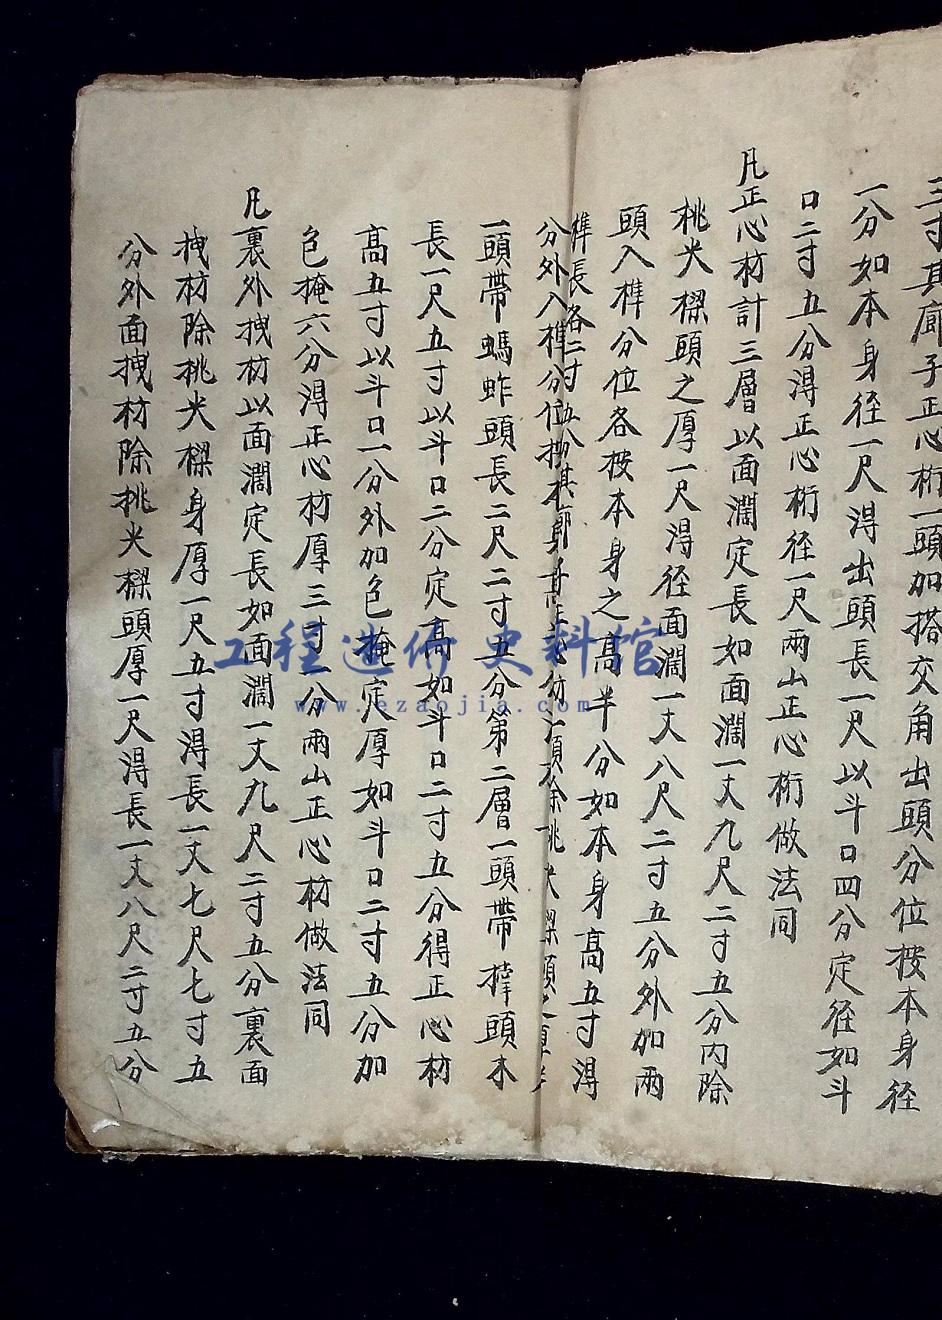 三寸其廊子正心桁一頭加搭交角出頭分位按本身徑
一分如本身徑一尺得出頭長一尺以斗口四分定徑如斗
口二寸五分得正心桁徑一尺兩山正心桁做法同
凡正心枋計三層以面濶定長如面濶一丈九尺二寸五分內除
桃尖樑頭之厚一尺得徑面濶一丈八尺二寸五分外加兩
頭入榫分位各按本身之高半分如本身高五寸得
榫長各二寸五分其廊
分外入榫分位按
一頭帶螞蚱頭長二尺二寸五分第二層一頭帶撑頭木
長一尺五寸以斗口二分定高如斗口二寸五分得正心枋
高五寸以斗口一分外加包掩定厚如斗口二寸五分加
包掩六分得正心枋厚三寸一分兩山正心枋做法同
凡裏外拽枋以面濶定長如面濶一丈九尺二寸五分裏面
拽枋除桃尖樑身厚一尺五寸得長一丈七尺七寸五
分外面拽枋除桃尖樑頭厚一尺得長一丈八尺二寸五分
工程造价史料馆
www.ezaojia.com